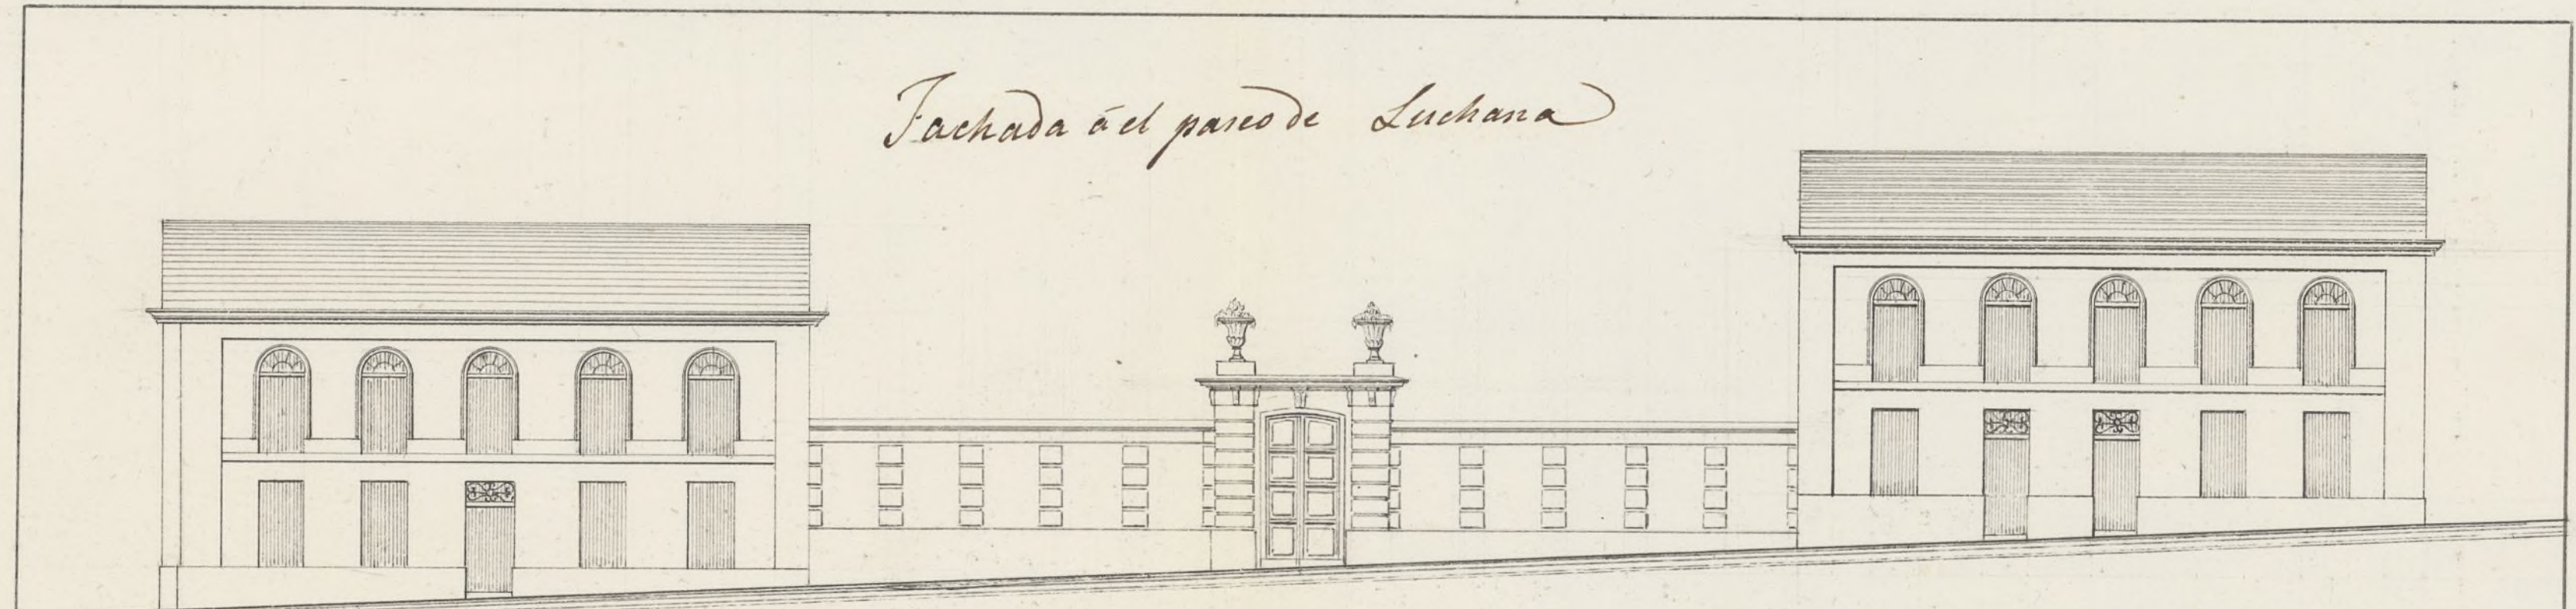 Fachada á el paseo de Luchana